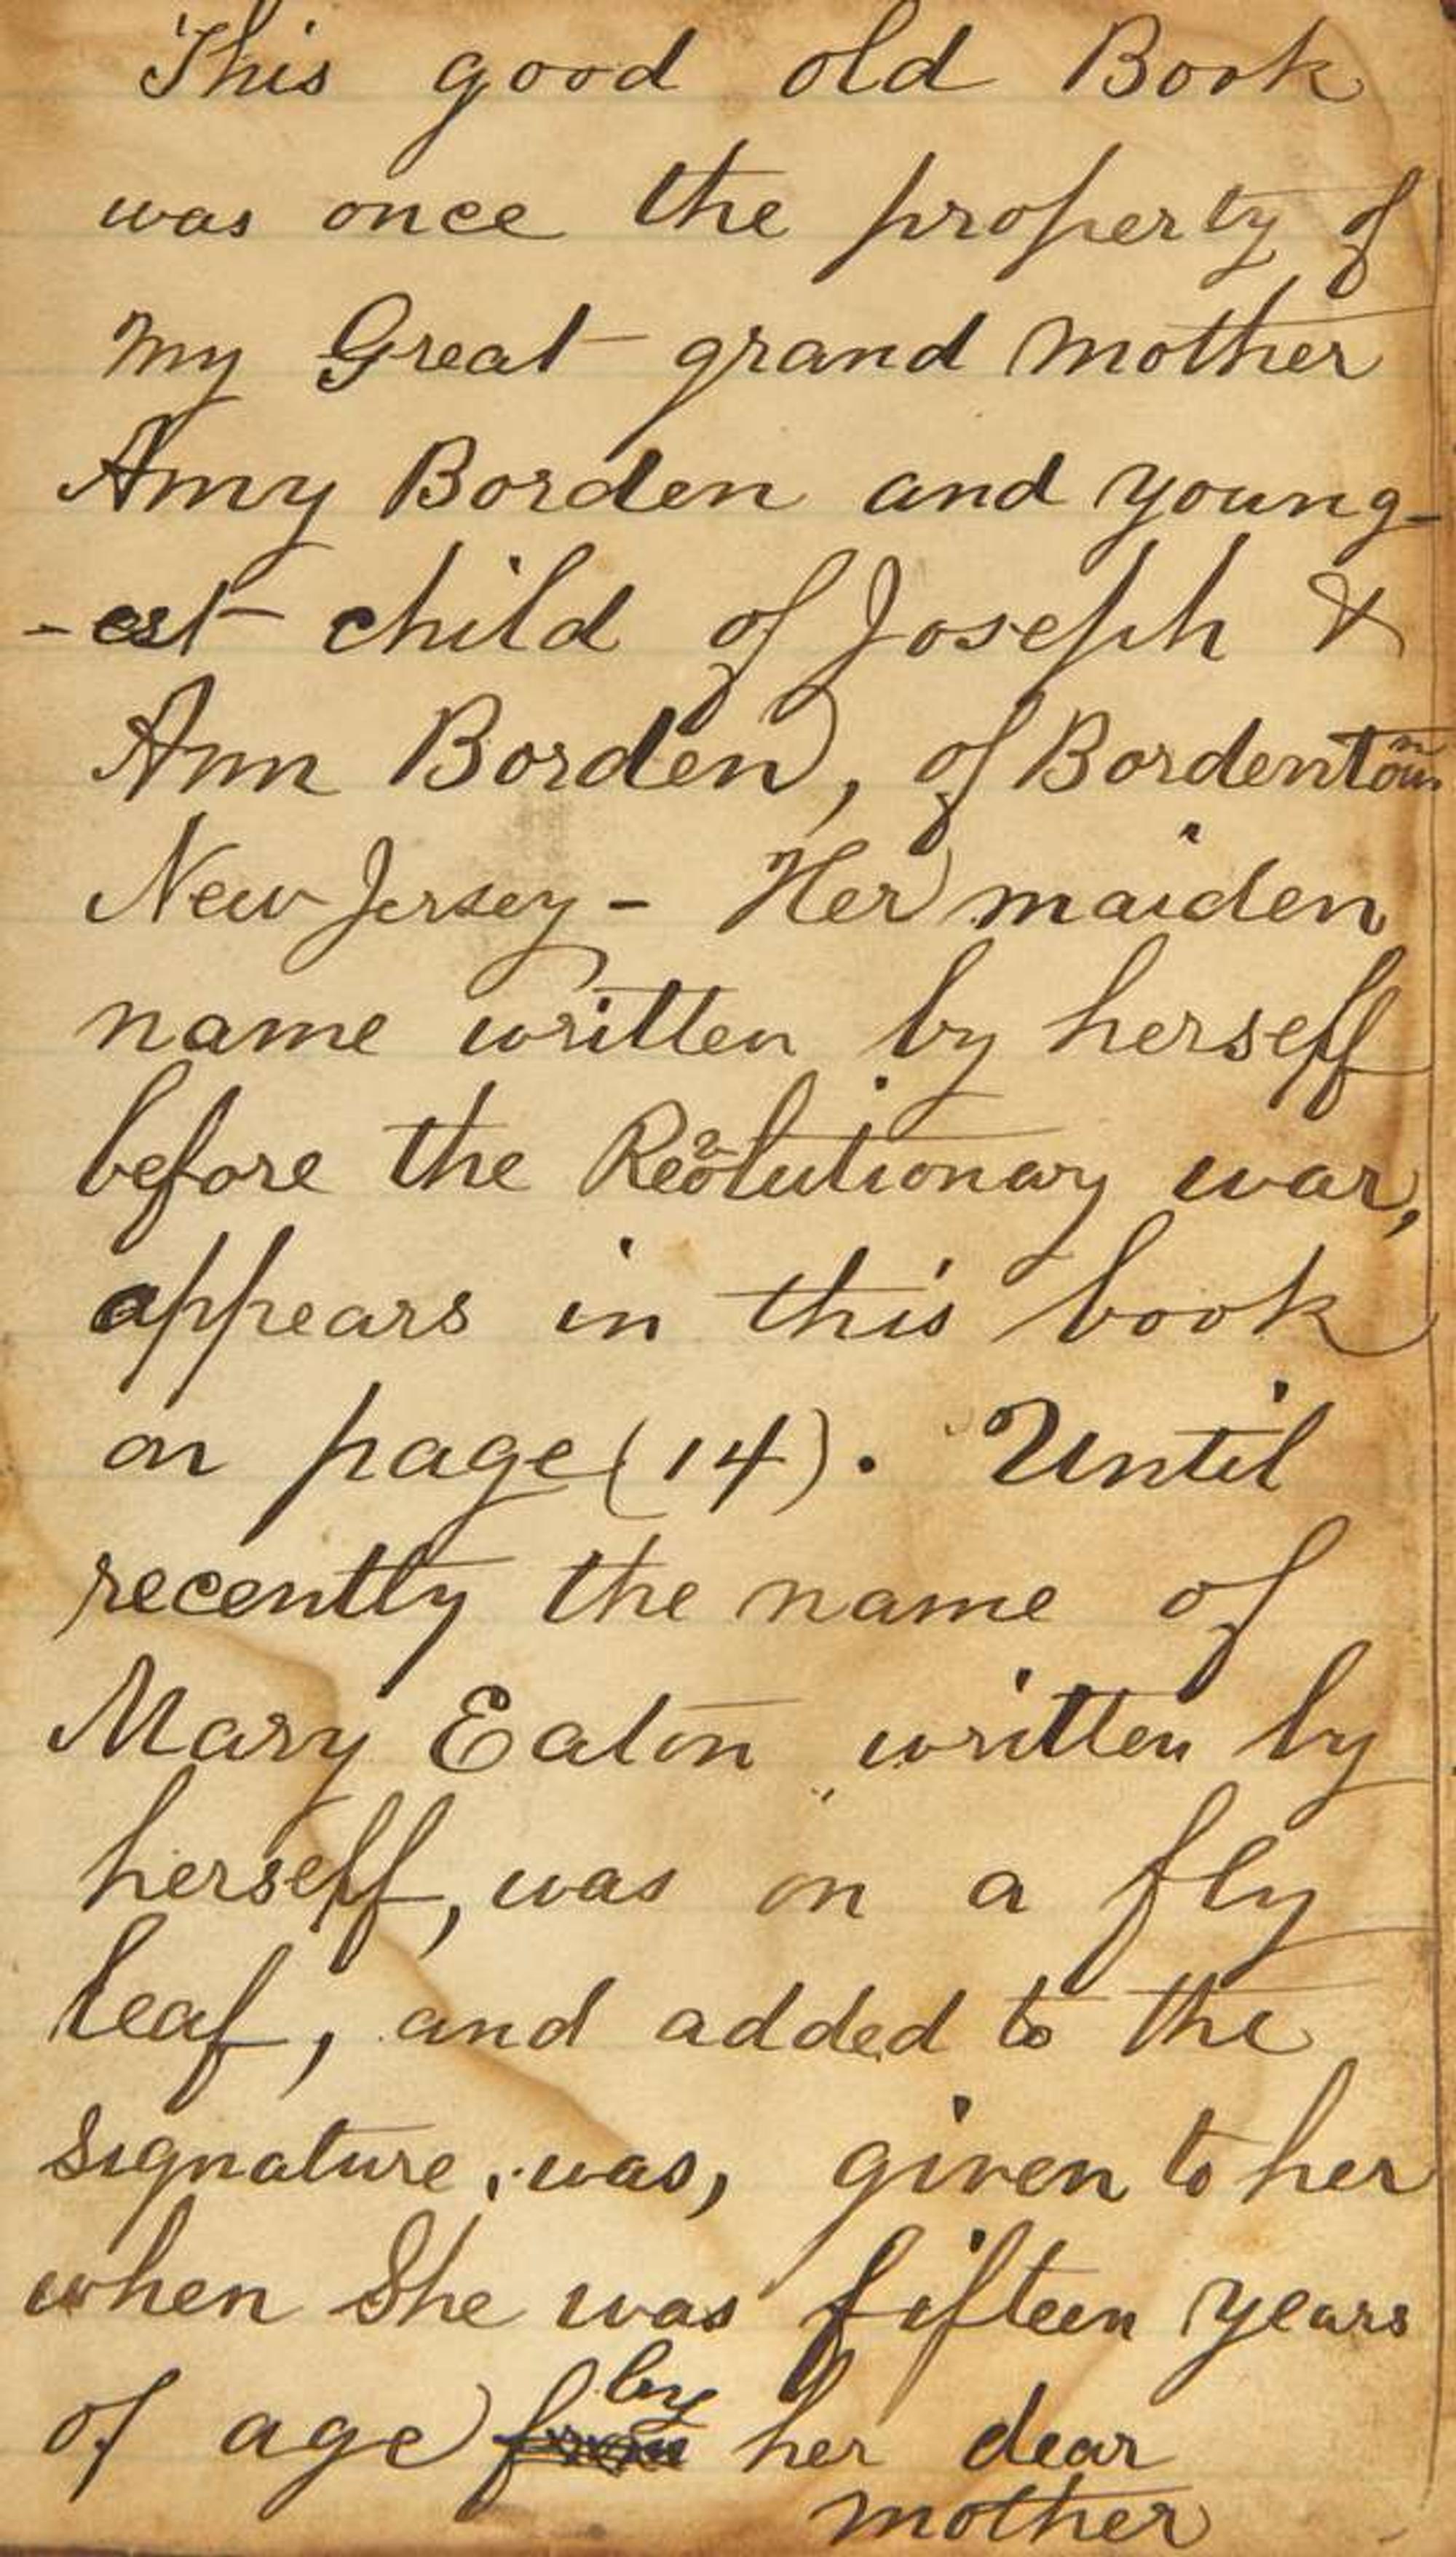 This good old Book
was once the property of
my Great grand mother
Amy Borden and young-
-est child of Joseph &
Ann Borden, of Bordentown
New Jersey - Her maiden
name written by herself
before the Revolutionary war,
appears in this book
on page (14). Until
recently the name of
Mary Eaton written by
herself, was on a fly
leaf, and added to the
signature, was, given to her
when She was fifteen years
of age from by her dear
mother